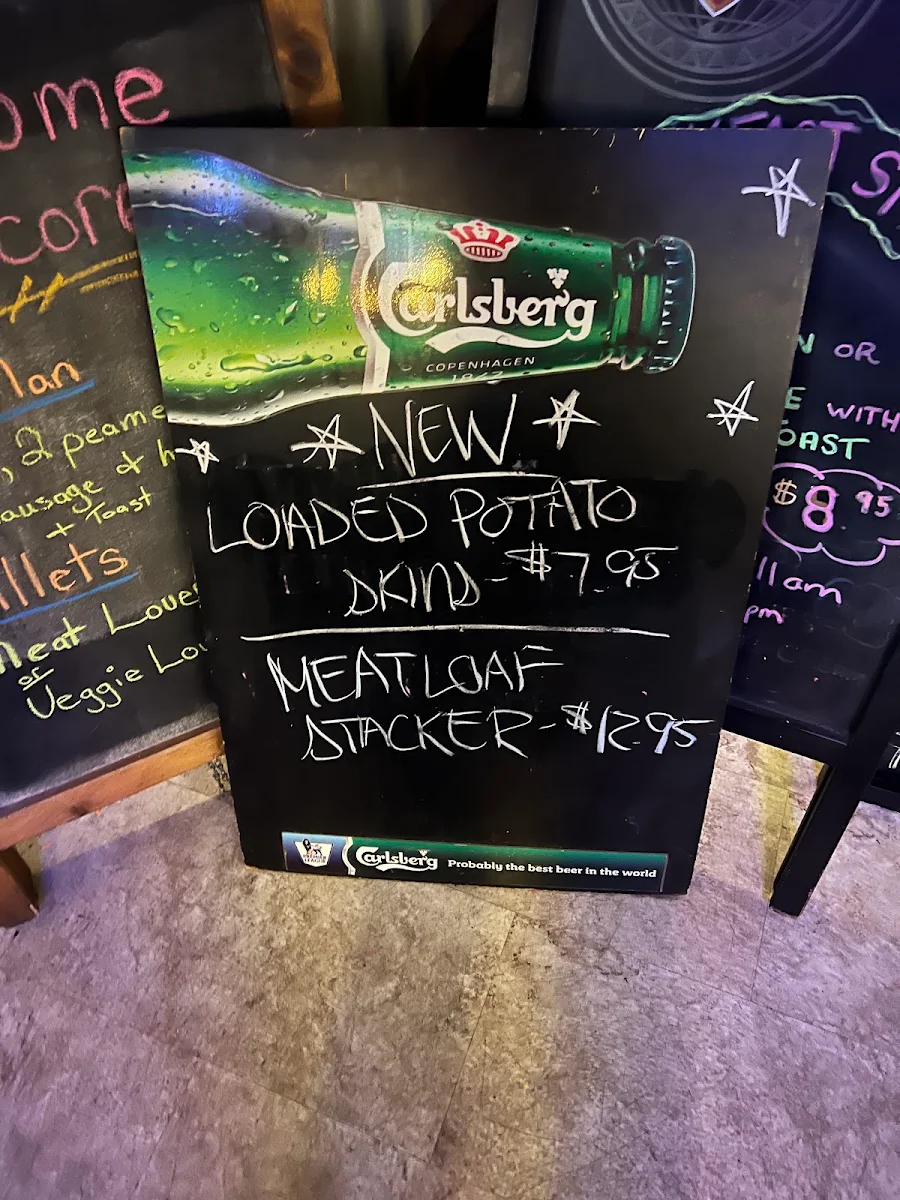 Carlsberg
COPENHAGEN
NEW
LOADED POTATO
SKINS - $7.95
MEATLOAF
STACKER - $12.95
PREMIER
LEAGUE
Carlsberg Probably the best beer in the world
, 2 peame
ausage &
+ Toast
Meat Love
or
Veggie Lo
OR
WITH
$8.95
11am
pm